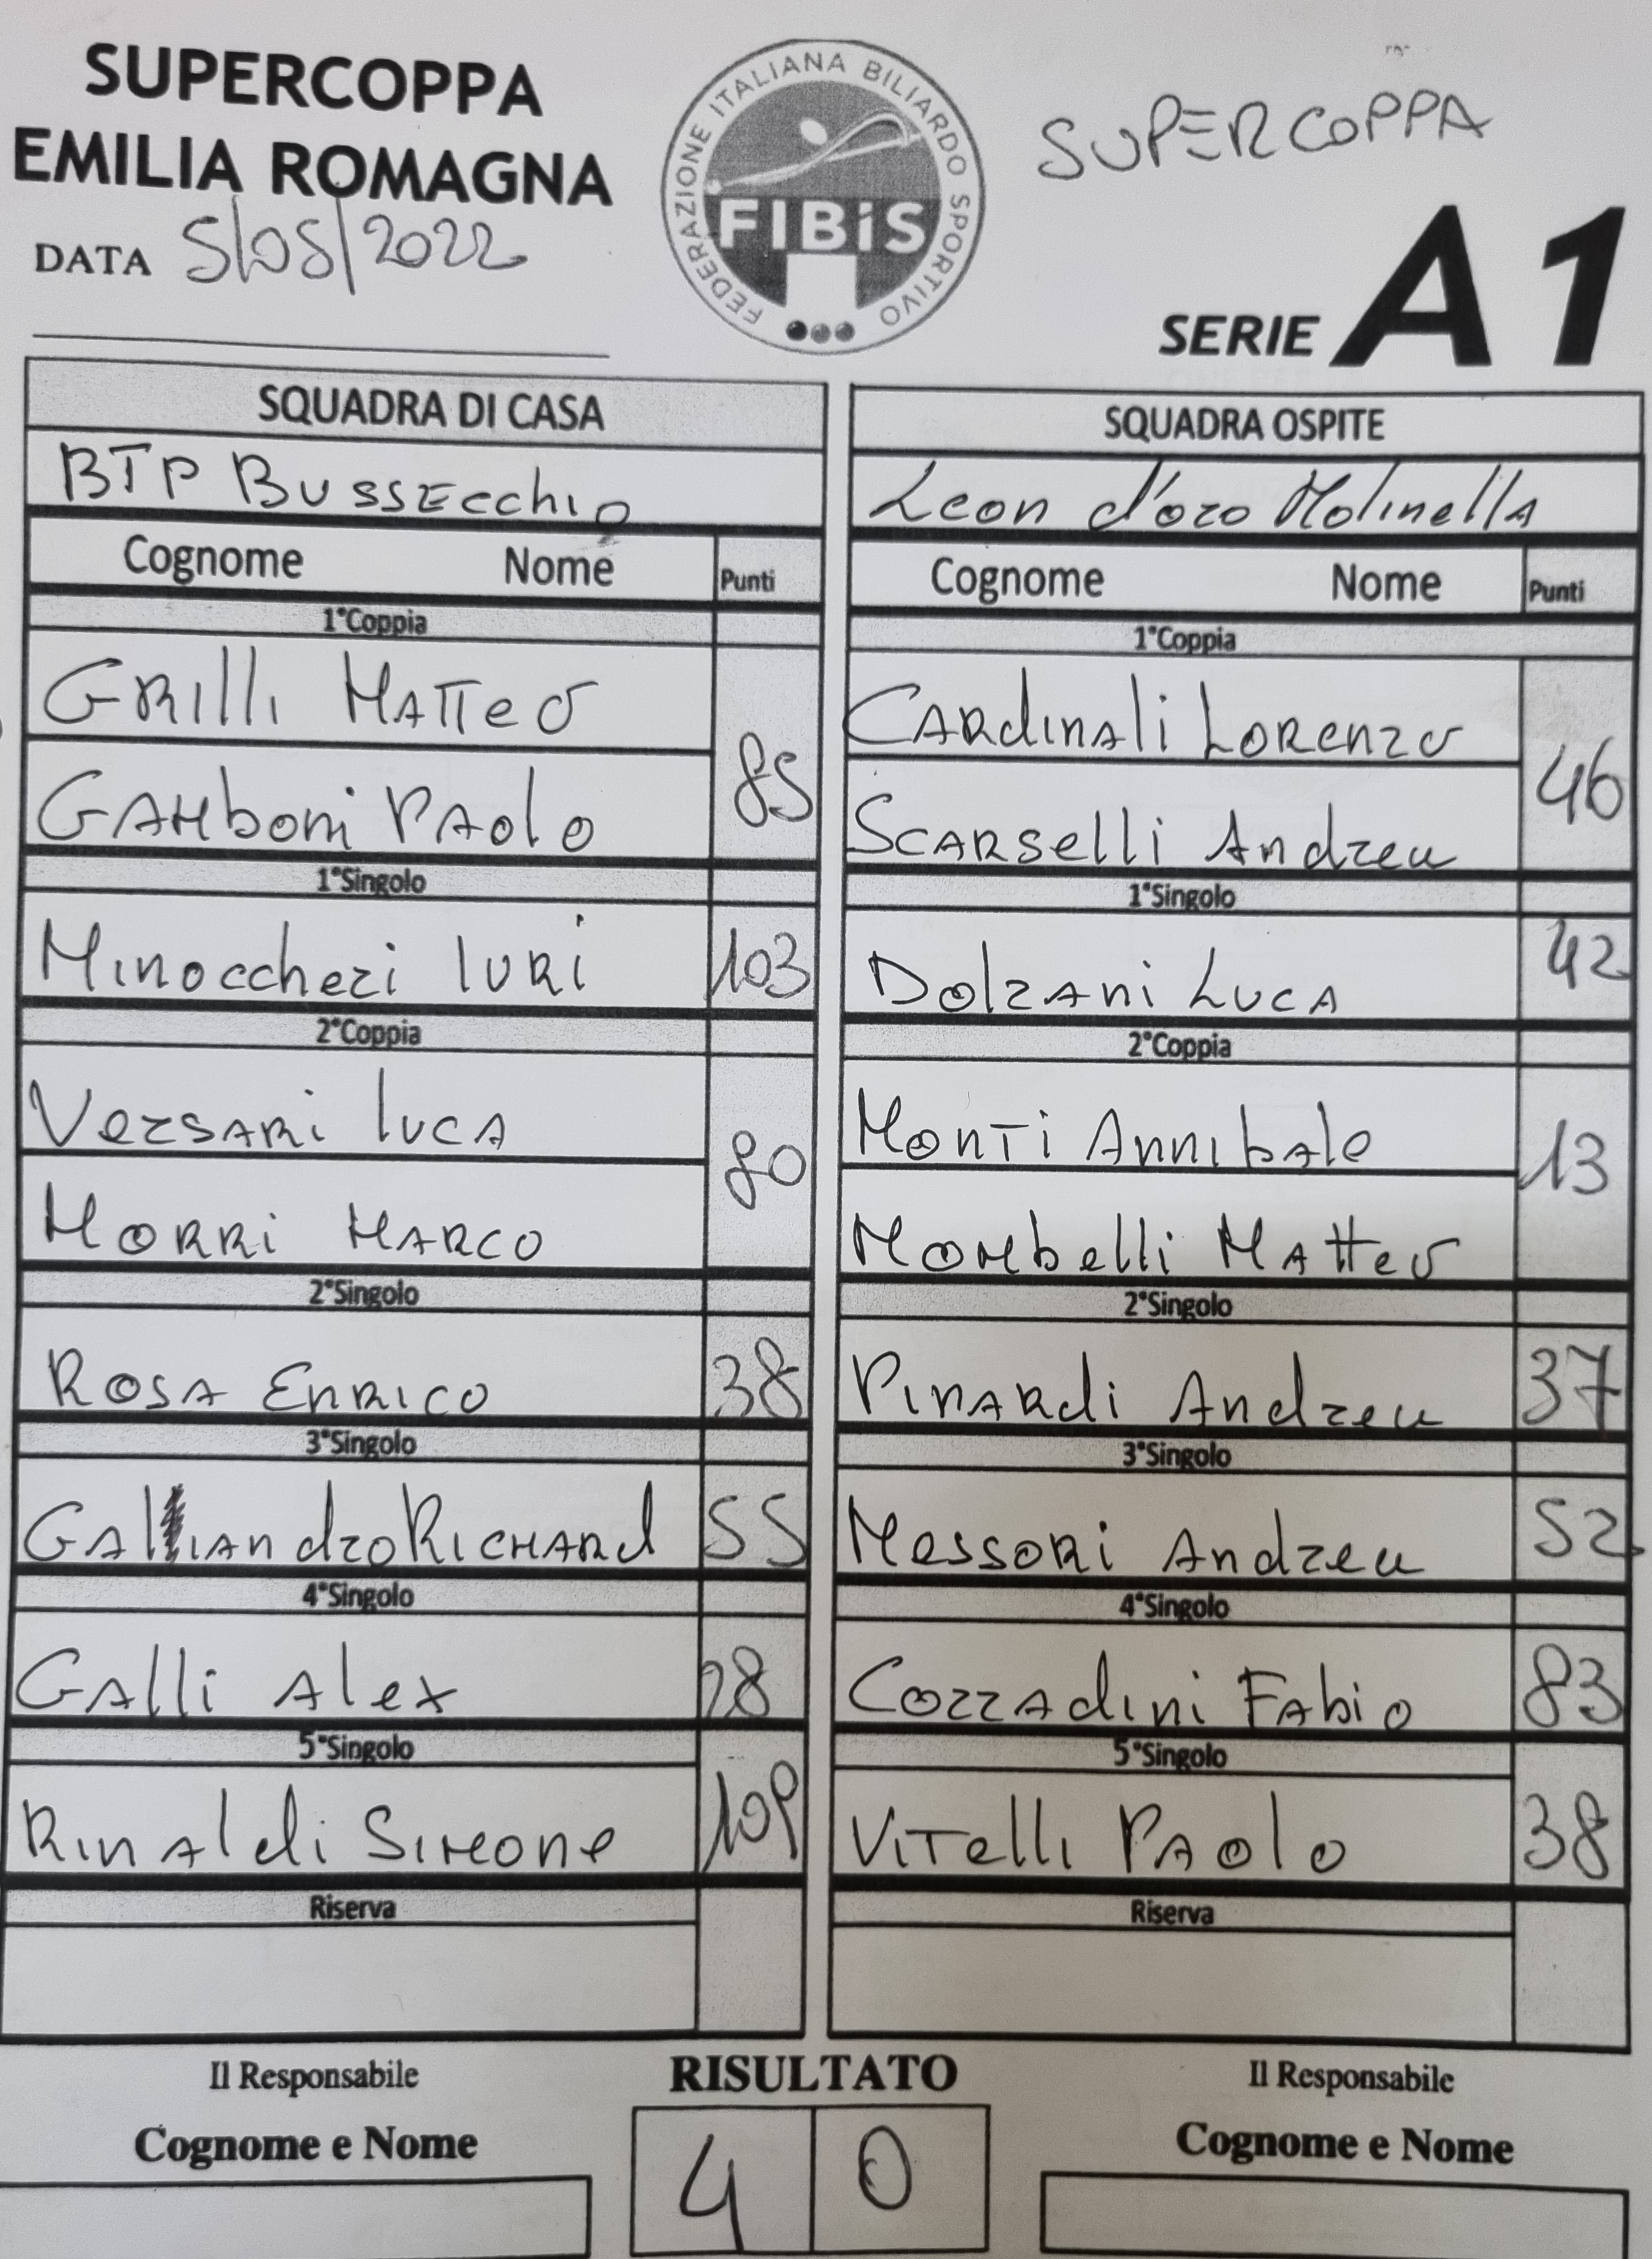 SUPERCOPPA
EMILIA ROMAGNA
DATA 5/05/2022
FEDERAZIONE ITALIANA BILIARDO SPORTIVO
FIBiS
SUPERCOPPA
SERIE A1
SQUADRA DI CASA SQUADRA OSPITE
BTP BUSSECchio Leon d'oro MolinellA
Cognome Nome Punti Cognome Nome Punti
1°Coppia 1°Coppia
GRIlli MATTeo CARdinAli LORenzo
85 46
GAMboni PAolo SCARSelli Andrea
1°Singolo 1°Singolo
Minoccheri IURi 103 DolzAni LUCA 42
2°Coppia 2°Coppia
VersARi lUCA MonTi AnnibAle
80 13
MORRi MARCO Mombelli MAtteo
2°Singolo 2°Singolo
ROSA ENRICO 38 PinARdi Andrea 37
3°Singolo 3°Singolo
GAlliAndro RICHARd 55 MessoRi Andrea 52
4°Singolo 4°Singolo
GAlli Alex 28 CozzAdini FAbio 83
5°Singolo 5°Singolo
RinAldi SiMone 109 ViTelli PAolo 38
Riserva Riserva
Il Responsabile RISULTATO Il Responsabile
Cognome e Nome 4 0 Cognome e Nome